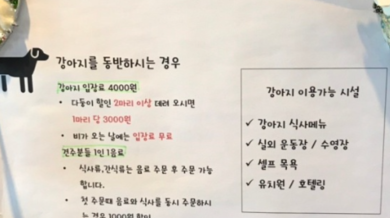 강아지를 동반하시는 경우
강아지 입장료 4000원
• 다둥이 할인 2마리 이상 데려 오시면
1마리 당 3000원
• 비가 오는 날에는 입장료 무료
견주분들 1인 1음료
• 식사류, 간식류는 음료 주문 후 주문 가능
합니다.
• 첫 주문때 음료와 식사를 동시 주문하시
는 경우 1000원 할인
강아지 이용가능 시설
✓ 강아지 식사메뉴
✓ 실외 운동장 / 수영장
✓ 셀프 목욕
✓ 유치원 / 호텔링